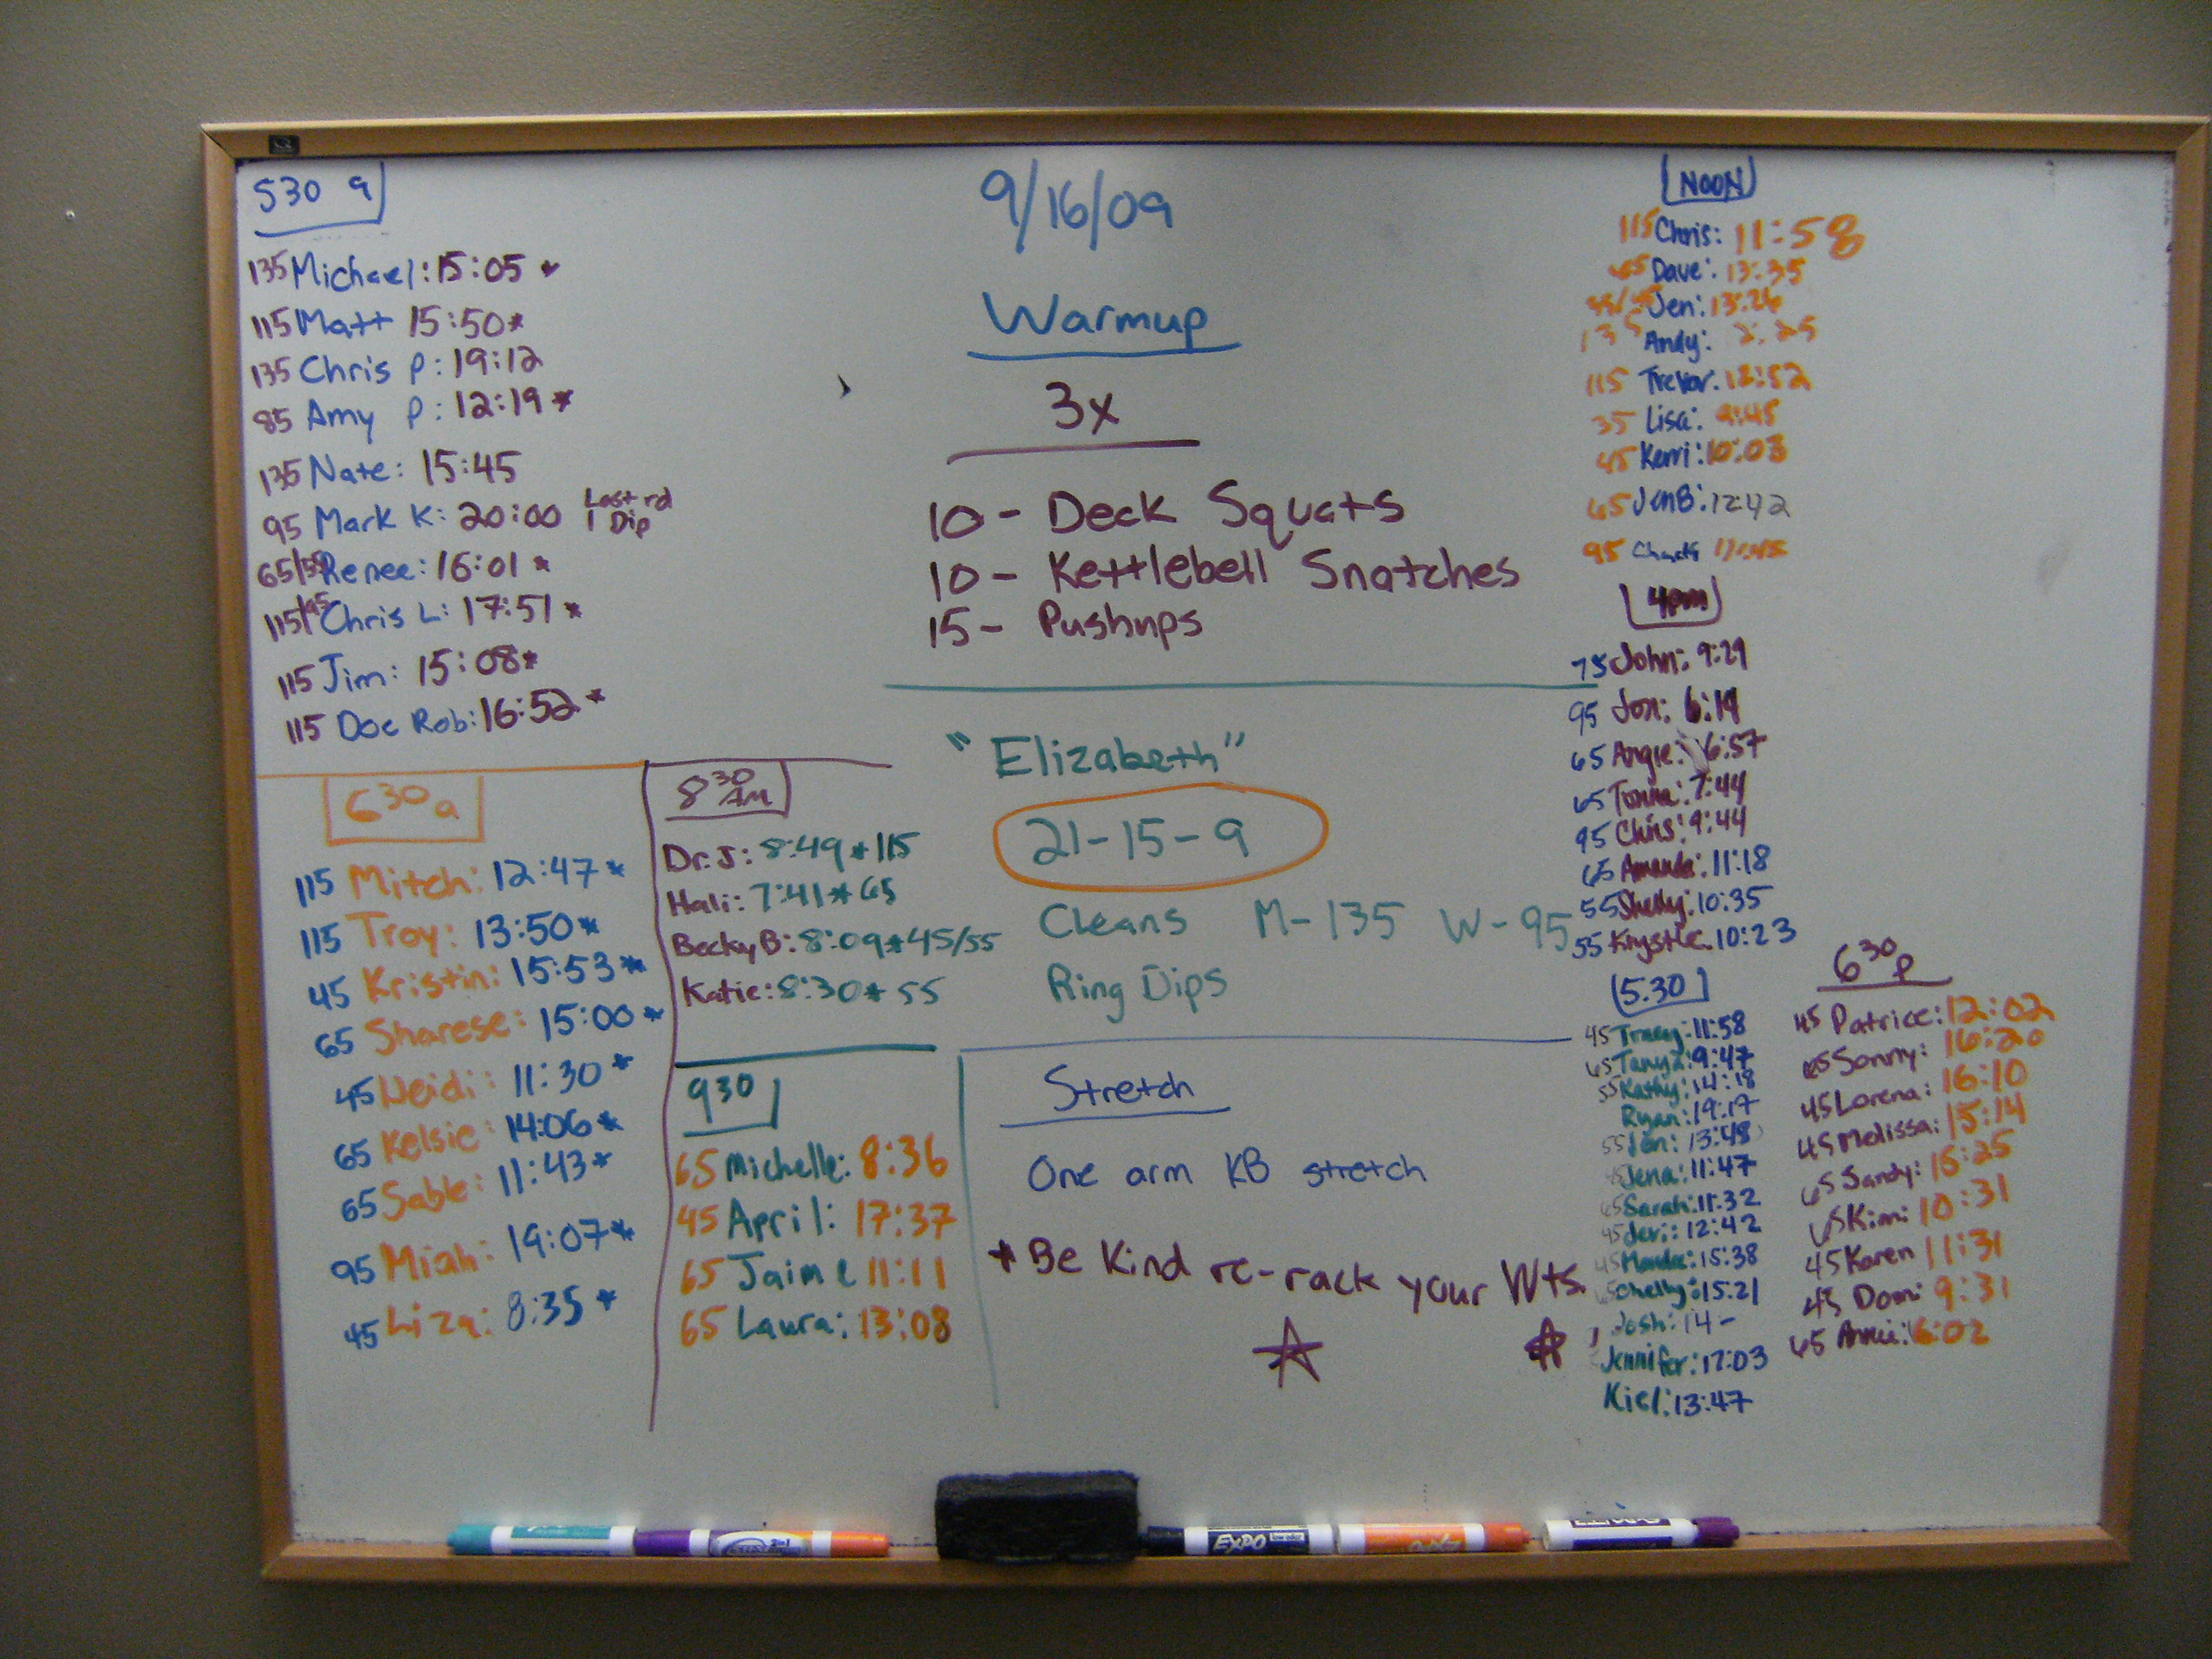 530 a
135 Michael: 15:05 *
115 Matt 15:50*
135 Chris P: 19:12
85 Amy P: 12:19*
135 Nate: 15:45
95 Mark K: 20:00 Last rd 1 Dip
Renee: 16:01 *
Chris L: 17:51 *
115 Jim: 15:08*
115 Doc Rob: 16:52*
630 a
115 Mitch: 12:47*
115 Troy: 13:50*
45 Kristin: 15:53*
65 Sharese: 15:00*
45 Heidi: 11:30*
65 Kelsie: 14:06*
65 Sable: 11:43*
95 Miah: 19:07*
45 Liza: 8:35*
830 AM
Dr. J: 8:49*115
Hali: 7:41*65
Becky B: 8:09*45/55
Katie: 8:30*55
930
65 Michelle: 8:36
45 April: 17:37
65 Jaime 11:11
65 Laura: 13:08
9/16/09
Warmup
3x
10- Deck Squats
10- Kettlebell Snatches
15- Pushups
"Elizabeth"
21-15-9
Cleans M-135 W-95
Ring Dips
Stretch
One arm KB stretch
*Be Kind re-rack your Wts.
NOON
115 Chris: 11:58
Dave: 13:35
Jen: 13:26
Andy:
115 Trevor: 12:52
35 Lisa: 9:45
45 Kerri: 10:03
65 Jen B: 12:42
95
4pm
75 John: 9:29
95 Jon: 6:19
65 Angie: 6:57
65 7:44
95 Chris: 9:44
65 Amanda: 11:18
55 Shelly: 10:35
55 Krystle: 10:23
5:30
45 Tracy: 11:58
65 Tanya: 9:47
55 Kathy: 14:18
Ryan: 19:17
55 Jen: 13:48
Jena: 11:47
Sarah: 11:32
45 Jeri: 12:42
15:38
Shelly: 15:21
Josh: 14-
Jennifer: 12:03
Kiel: 13:47
630 p
45 Patrice: 12:02
Sonny: 16:20
45 Lorena: 16:10
45 Melissa: 15:14
65 Sandy: 15:25
65 Kim: 10:31
45 Karen 11:31
45 Dom: 9:31
65 6:02
EXPO